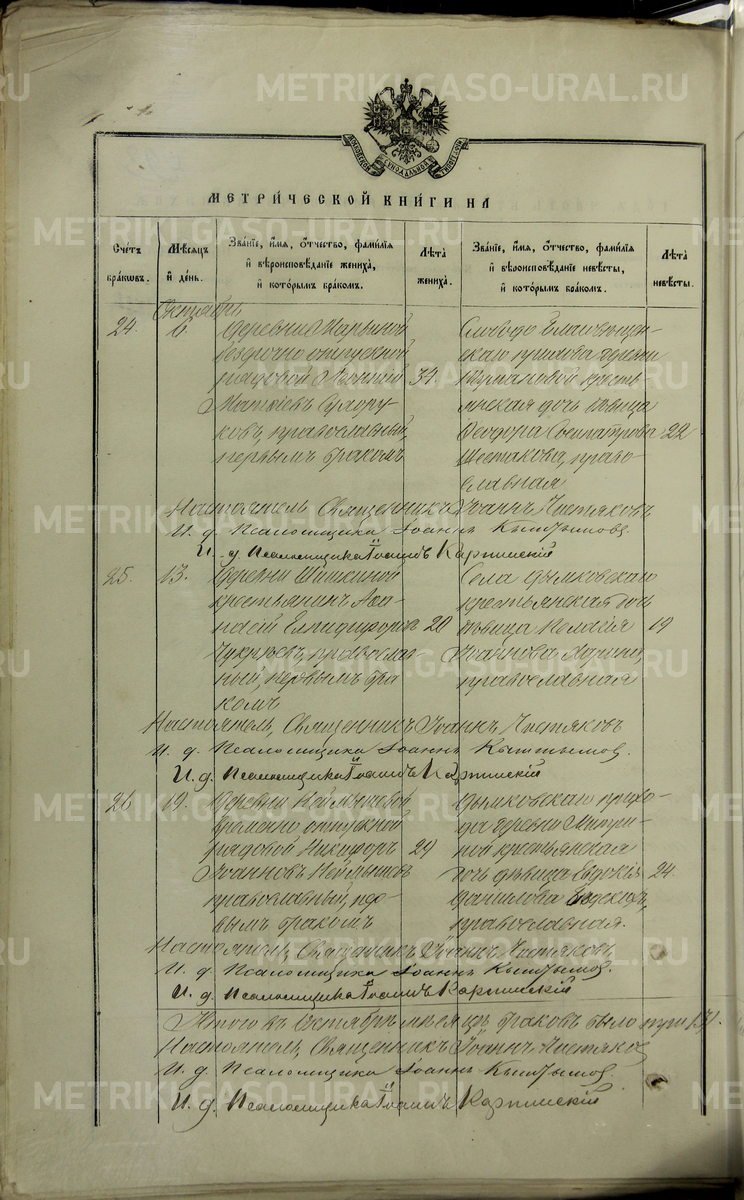 METRIKI.GASO-URAL.RU
МЕТРИ́ЧЕСКОЙ КНИ́ГИ НА
Сче́тъ бра́ковъ.
Мѣ́сяцъ й де́нь.
Зва́нїе, и́мя, о́тчество, фами́лїя й вѣроисповѣ́данїе жениха̀, й кото́рымъ бра́комъ.
Лѣ́та жениха̀.
Зва́нїе, и́мя, о́тчество, фами́лїя й вѣроисповѣ́данїе невѣ́сты, й кото́рымъ бра́комъ.
Лѣ́та невѣ́сты.
Октябрь
24.
6
Деревни Марьиной
безсрочно отпускной
рядовой
Матѳіевъ Сухору-
ковъ, православный,
первымъ бракомъ
34
Слободо Благовѣщен-
скаго прихода деревни
кресть-
янская дочь дѣвица
Ѳеодора Сосипатрова
Шестакова, право-
славная
22
Настоятель, Священникъ Іоаннъ Чистяковъ
И. д. Псаломщика Іоаннъ Кыштымовъ
И. д. Псаломщика Іоаннъ Карпинскій
25.
13.
Деревни Шишкиной
крестьянинъ Аѳа-
насій Елпидифоровъ
православ-
ный, первымъ бра-
комъ
20
Села Дымковскаго
крестьянская дочь
дѣвица Пелагія
Іоаннова
православная
19
Настоятель, Священникъ Іоаннъ Чистяковъ
И. д. Псаломщика Іоаннъ Кыштымовъ.
И. д. Псаломщика Іоаннъ Карпинскій
26
19.
Деревни Неймышевой
временно отпускной
рядовой Никифоръ
Іоанновъ Неймышевъ
православный, пер-
вымъ бракомъ
29
Дымковскаго прихо-
да деревни
крестьянская
дочь дѣвица Евдокія
Данилова
православная.
24.
Настоятель, Священникъ Іоаннъ Чистяковъ
И. д. Псаломщика Іоаннъ Кыштымовъ.
И. д. Псаломщика Іоаннъ Карпинскій
Итого въ Октябрѣ мѣсяцѣ браковъ было три (3).
Настоятель, Священникъ Іоаннъ Чистяковъ
И. д. Псаломщика Іоаннъ Кыштымовъ.
И. д. Псаломщика Іоаннъ Карпинскій